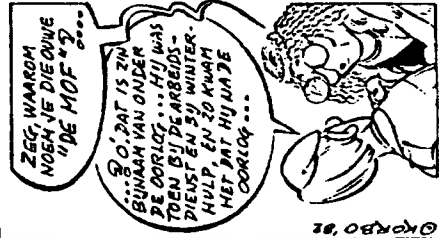 ZEG, WAAROM
NOEM JE DIE OUWE
"DE MOF"?
....
...? O, DAT IS Z'N
BIJNAAM VAN ONDER
DE OORLOG... HIJ WAS
TOEN BIJ DE ARBEIDS-
DIENST EN BIJ WINTER-
HULP, EN ZO KWAM
HET DAT HIJ NA DE
OORLOG...
©KORBO '82